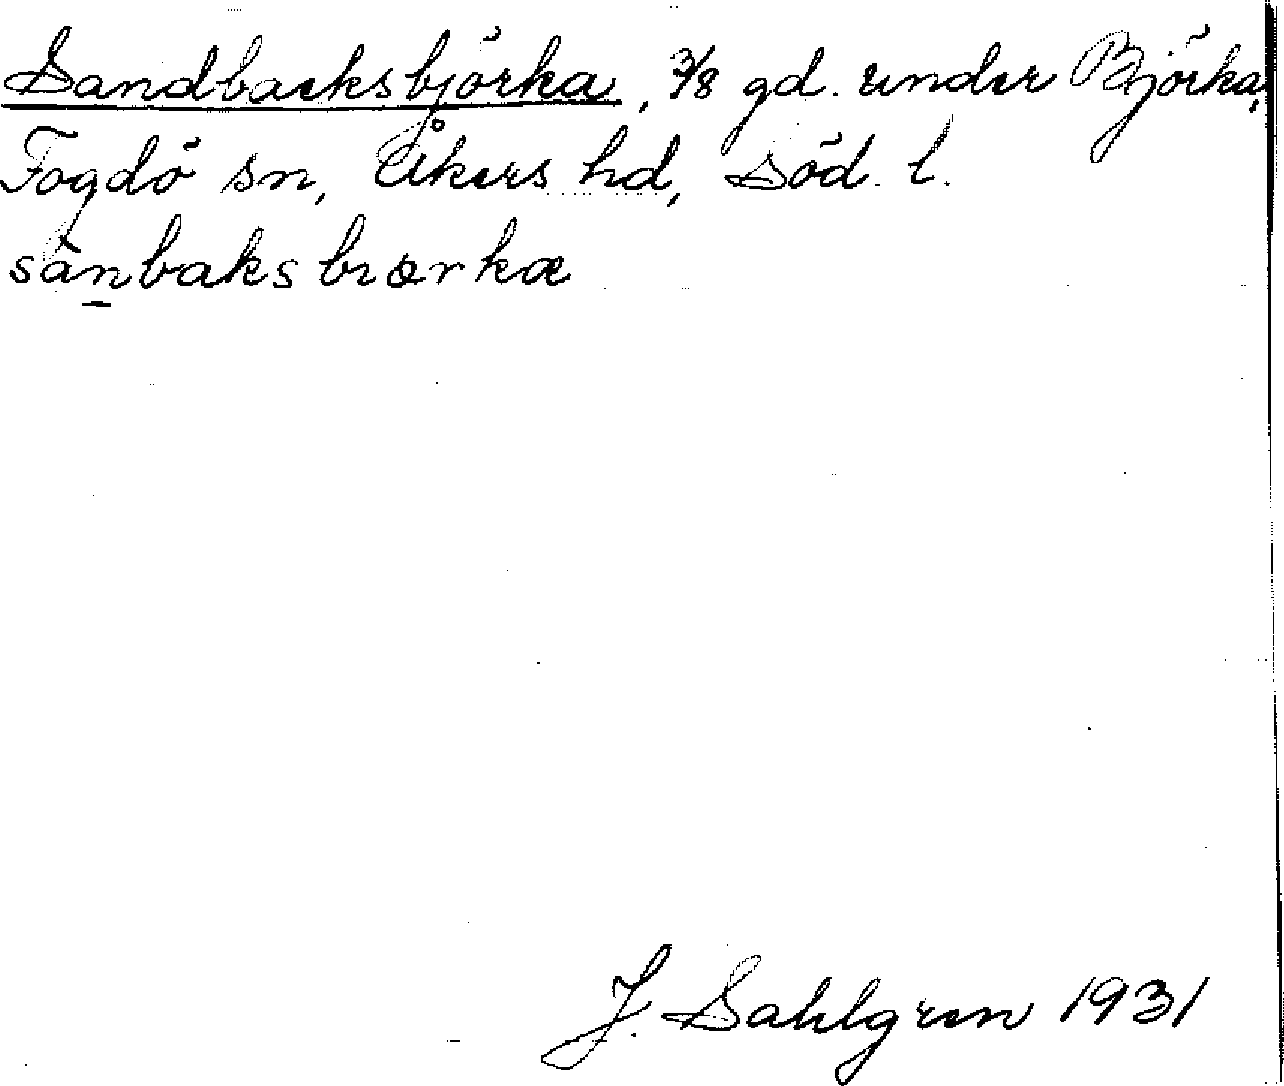 Sandbacksbjörka, 3/8 gd. under Björka,
Fogdö sn, Åkers hd, Söd. l.
sànbaksbɩœrka
J. Sahlgren 1931